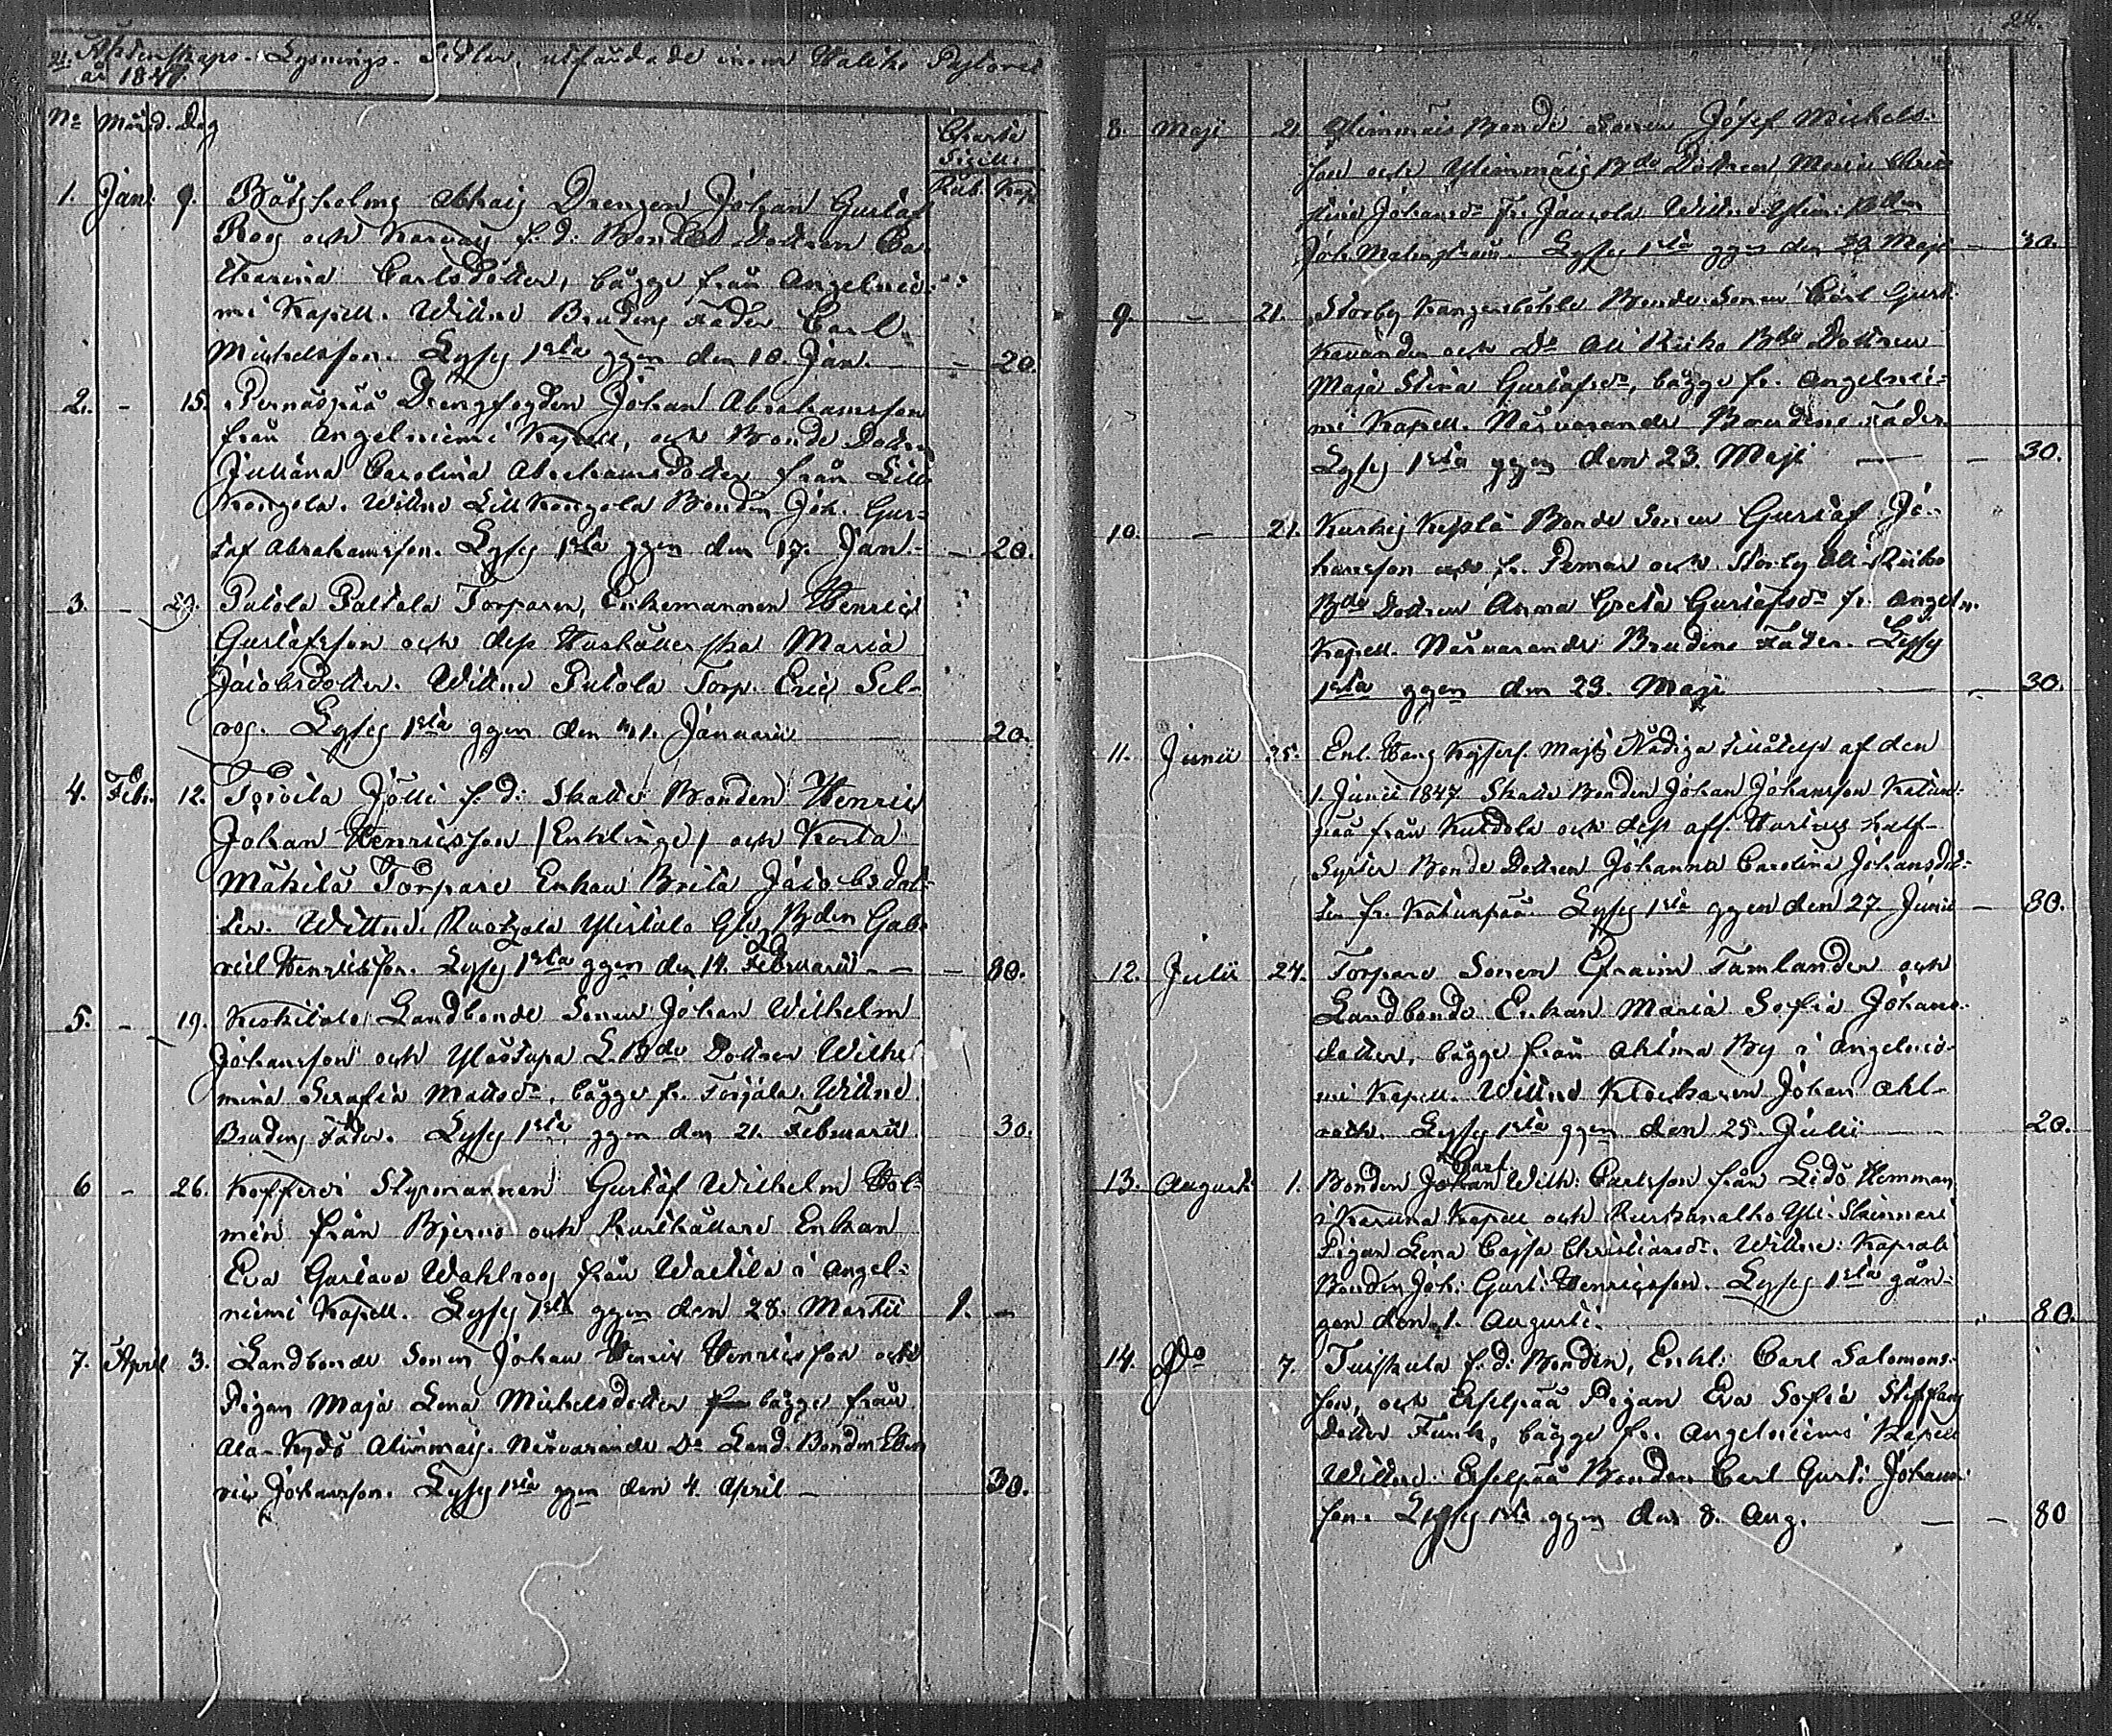 21. Ähtenskaps-Lysnings-Sedlar, utfärdade inom Haliko Pastorat
år 1847.
No Månd. Dag Charta Sigill.
Rub. Kop.
1. Jan. 9. Båtsholms Drengen Johan Gustaf
Roos och Karvais f.d. Bonde Dottren Ca-
tharina Carlsdotter, bägge från Angelnie-
mi Kapell. Wittne Brudens Fader Carl
Michelsson. Lyses 1sta ggen den 10. Jan. - 20.
2. - 15. Pernäspää Drengfogden Johan Abrahamsson
från Angelniemi Kapell, och Bonde Dottren
Juliana Carolina Abrahamsdotter från Lill
Kongola. Wittne Lill Kongola Bonden Joh. Gus-
taf Abrahamsson. Lyses 1sta ggen den 17. Jan. - 20.
3. - 29. Patola Torparen, Enkemannen Henric
Gustafsson och dess Hushållerska Maria
Jacobsdotter. Wittne Patola Torp. Eric Sel-
ros. Lyses 1sta ggen den 31. Januarii 20.
4. Febr. 12. Toivila Jölli f.d. Skatte Bonden Henric
Johan Henricsson /Enklinge/ och
Mäkilä Torpare Enkan Brita Jacobsdot-
ter. Wittne. Bden Gab-
riel Henricsson. Lyses 1sta ggen den 14. Februarii - 80.
5. - 19. Keskitalo Landbonde Sonen Johan Wilhelm
Johansson och Ylöstupa L.Bde Dottren Wilhel
mina Serafia Mattsdr, bägge fr. Toijala. Wittne
Brudens Fader. Lyses 1sta ggen den 21. Februarii 30.
6 - 26. Kofferdi Styrmannen Gustaf Wilhelm Hol-
mén från Bjerno och Enkan
Eva Gustava Wahlroos från i Angel-
niemi Kapell. Lyses 1sta ggen den 28. Martii 1. -
7. April 3. Landbonde Sonen Johan Henric Henricsson och
Pigan Maja Lena Michelsdotter bägge från
Ala-Kydö Alimmais. Närvarande Do Land-Bonden Hen
ric Johansson. Lyses 1sta ggen den 4. April - 30.
28.
8. Maji 21 Ylimmäis Bonde Sonen Josef Michels-
son och Ylimmäis Bde Dottren Maria Chris
tina Johansdr fr. Wittne Ylim: Bden
Joh. Malmström. Lyses 1sta ggen den Maji - 30.
9. - 21. Storby Bonde Sonen Carl Gust.
och Do Ali Kiiko Bde Dottren
Maja Stina Gustafsdr, bägge fr. Angelnie-
mi Kapell. Närvarande Brudens Fader
Lyses 1sta ggen den 23. Maji - 30.
10. - 21. Bonde Sonen Gustaf Jo-
hansson fr. Pemar och Storby Ali-Kiiko
Bde Dottren Anna Greta Gustafsdr fr. Angeln.
Kapell. Närvarande Brudens Fader. Lyses
1sta ggen den 23. Maji - 30.
11. Junii 25. Enl. Hans Kejserl. Majts Nådiga tillåtelse af den
1. Junii 1847. Skatte Bonden Johan Johansson Katun-
pää från och dess afl. Hustrus half-
Syster Bonde Dottren Johanna Carolina Johansdot-
ter fr. Katunpää. Lyses 1sta ggen den 27. Junii - 80.
12. Julii 24. Torpare Sonen Efraim Tamlander och
Landbonde Enkan Maria Sofia Johans-
dotter, bägge från Ahtma By i Angelnie-
mi Kapell. Wittne Klockaren Johan Ahl-
roth. Lyses 1sta ggen den 25. Julii 20.
13. Augusti 1. Bonden Johan Carl Wilh: Carlsson från Lidö Hemman
i Karuna Kapell och Yli-Skinnari
Pigan Lena Cajsa Christiansdr. Wittne:
Bonden Joh: Gust: Henricsson. Lyses 1sta gån-
gen den 1. Augusti. 80.
14. Do 7. Tuiskula f.d. Bonden, Enkl: Carl Salomons-
son, och Esselpää Pigan Eva Sofia Steffans
dotter Funk, bägge fr. Angelniemi Kapell
Wittne Esselpää Bonden Carl Gust: Johans-
son. Lyses 1sta ggen den 8. Aug. - 80